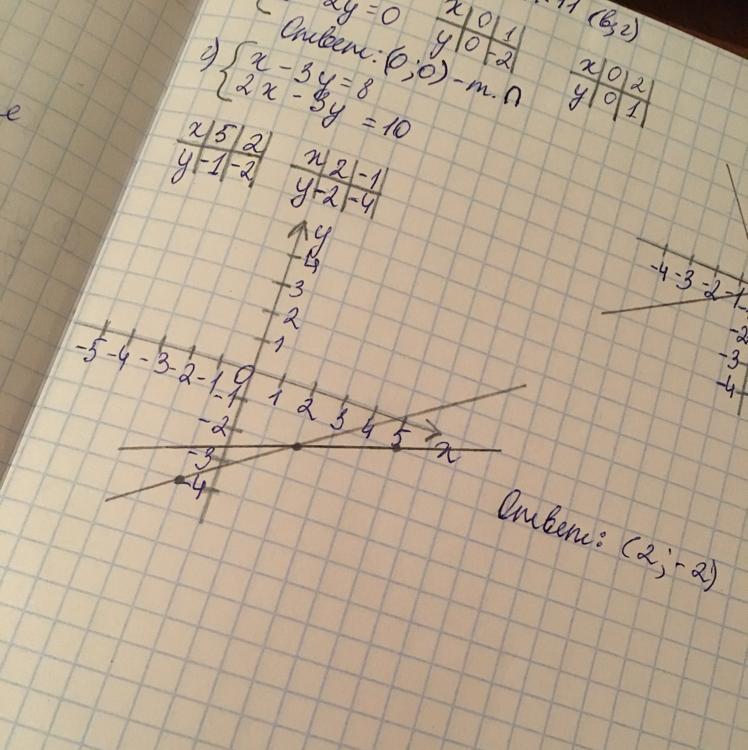 2y = 0
x 0 1
y 0 -2
11 (в,г)
Ответ: (0;0) - т. П
x 0 2
y 0 1
г) { x - 3y = 8
2x - 3y = 10
x 5 2
y -1 -2
x 2 -1
y -2 -4
y
4
3
2
1
-5 -4 -3 -2 -1 0 1 2 3 4 5 x
-1
-2
-3
-4
-4 -3 -2 -1
-2
-3
-4
Ответ: (2;-2)